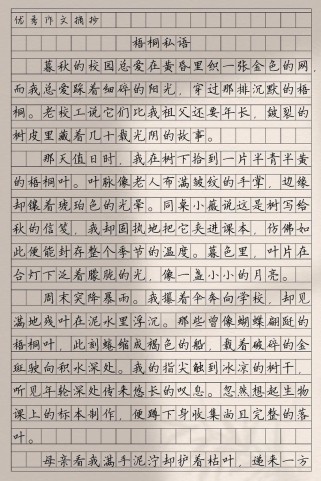 优秀作文摘抄
梧桐私语
暮秋的校园总爱在黄昏里织一张金色的网,
而我总爱踩着细碎的阳光，穿过那排沉默的梧
桐。老校工说它们比我祖父还要年长，皴裂的
树皮里藏着几十载光阴的故事。
那天值日时，我在树下拾到一片半青半黄
的梧桐叶。叶脉像老人布满皱纹的手掌，边缘
却镶着琥珀色的光晕。同桌小薇说这是树写给
秋的信笺，我却固执地把它夹进课本，仿佛如
此便能封存整个季节的温度。暮色里，叶片在
台灯下泛着朦胧的光，像一盏小小的月亮。
周末突降暴雨。我攥着伞奔向学校，却见
满地残叶在泥水里浮沉。那些曾像蝴蝶翩跹的
梧桐叶，此刻蜷缩成褐色的船，载着破碎的金
斑驶向积水深处。我的指尖触到冰凉的树干，
听见年轮深处传来悠长的叹息。忽然想起生物
课上的标本制作，便蹲下身收集尚且完整的落
叶。
母亲看我满手泥泞却护着枯叶，递来一方